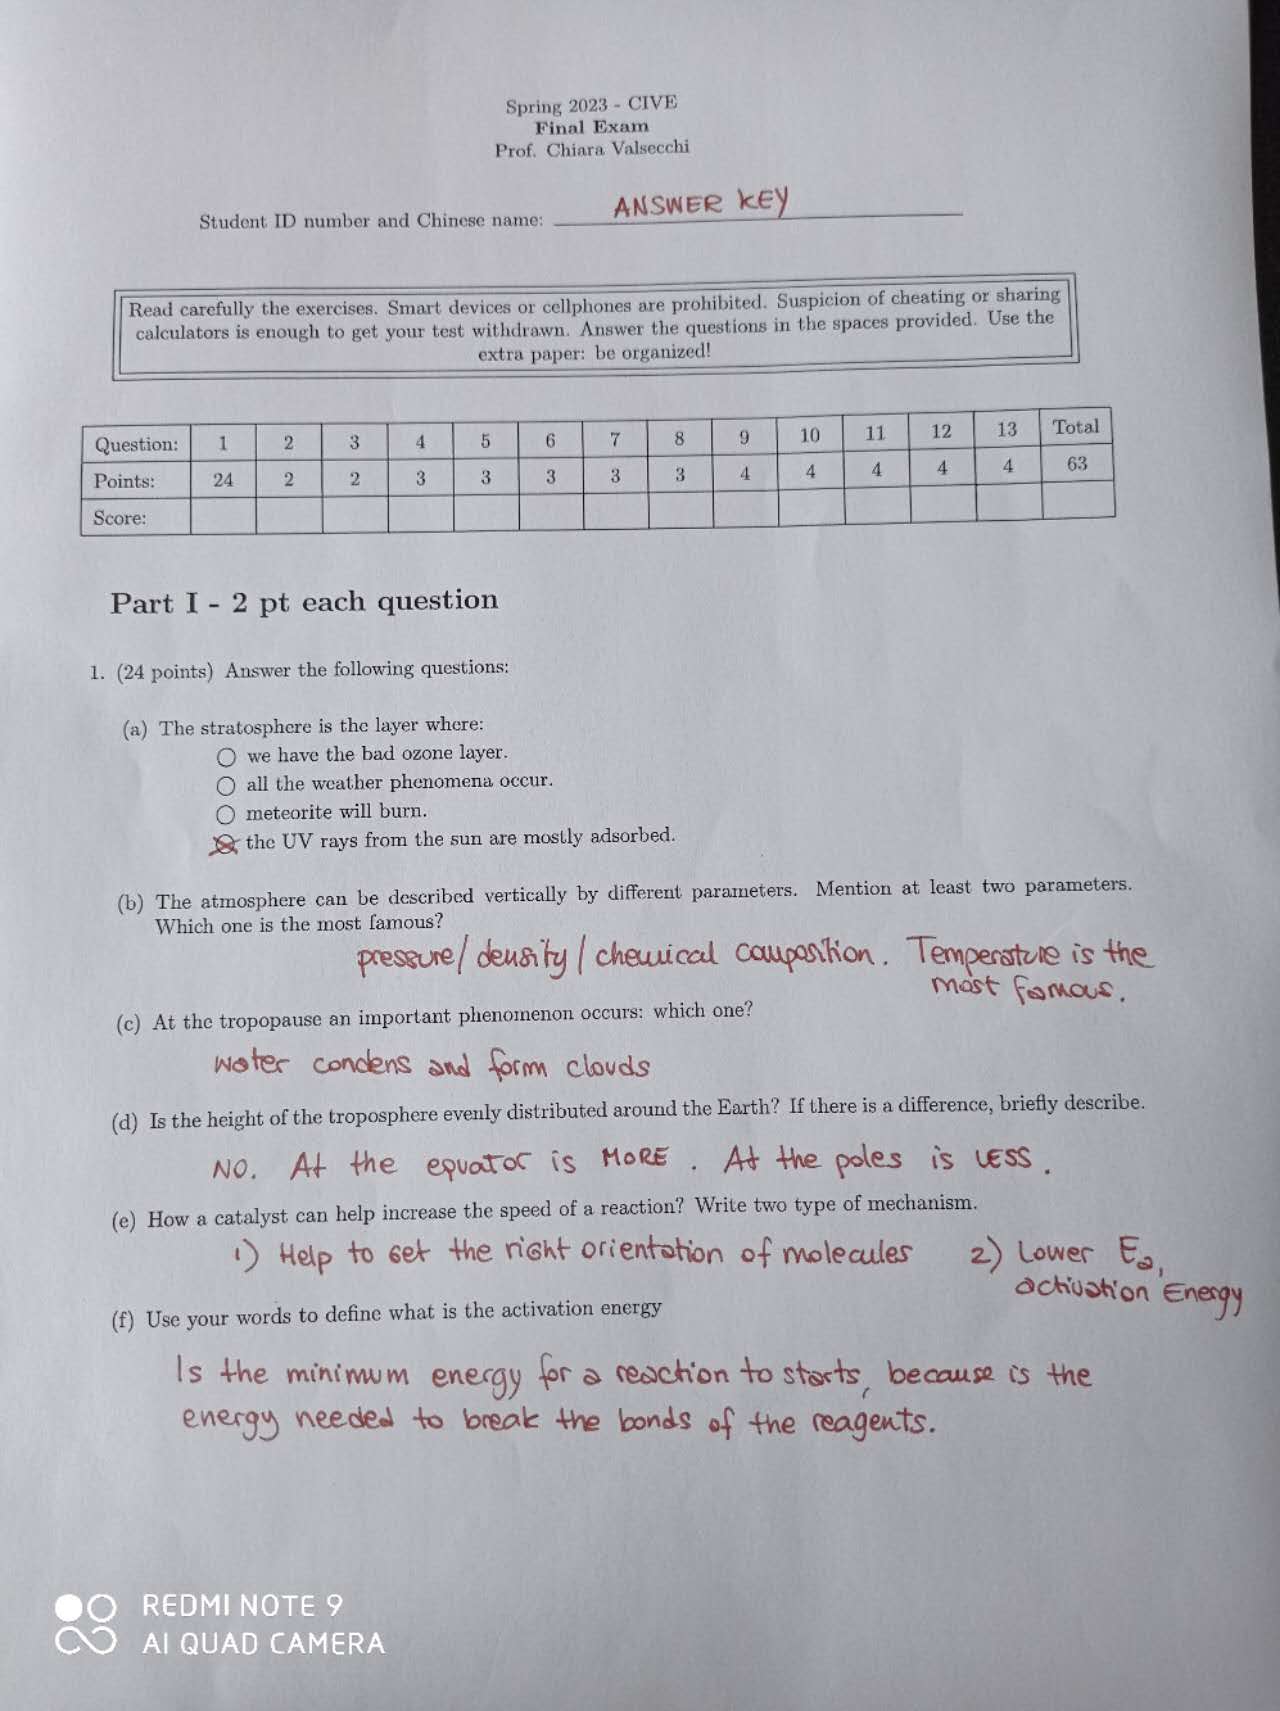 Spring 2023 - CIVE
Final Exam
Prof. Chiara Valsecchi
Student ID number and Chinese name: ANSWER KEY
Read carefully the exercises. Smart devices or cellphones are prohibited. Suspicion of cheating or sharing
calculators is enough to get your test withdrawn. Answer the questions in the spaces provided. Use the
extra paper: be organized!
Question: 1 2 3 4 5 6 7 8 9 10 11 12 13 Total
Points: 24 2 2 3 3 3 3 3 4 4 4 4 4 63
Score:
Part I - 2 pt each question
1. (24 points) Answer the following questions:
(a) The stratosphere is the layer where:
we have the bad ozone layer.
all the weather phenomena occur.
meteorite will burn.
the UV rays from the sun are mostly adsorbed.
(b) The atmosphere can be described vertically by different parameters. Mention at least two parameters.
Which one is the most famous?
pressure/ density / chemical composition. Temperature is the
most famous.
(c) At the tropopause an important phenomenon occurs: which one?
water condens and form clouds
(d) Is the height of the troposphere evenly distributed around the Earth? If there is a difference, briefly describe.
NO. At the equator is MORE. At the poles is LESS.
(e) How a catalyst can help increase the speed of a reaction? Write two type of mechanism.
1) Help to get the right orientation of molecules 2) Lower Ea,
activation Energy
(f) Use your words to define what is the activation energy
Is the minimum energy for a reaction to starts, because is the
energy needed to break the bonds of the reagents.
REDMI NOTE 9
AI QUAD CAMERA